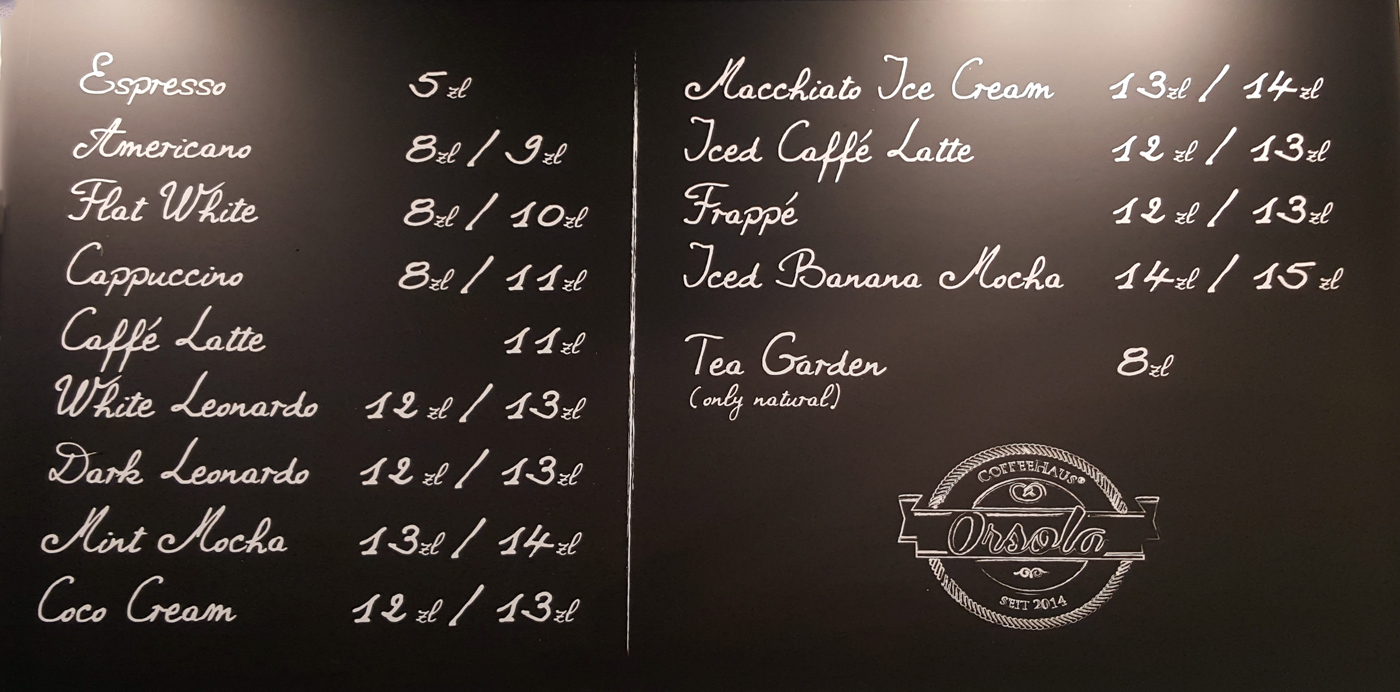 Espresso 5 zł
Americano 8zł / 9zł
Flat White 8zł / 10zł
Cappuccino 8zł / 11zł
Caffé Latte 11zł
White Leonardo 12 zł / 13zł
Dark Leonardo 12 zł / 13zł
Mint Mocha 13zł / 14zł
Coco Cream 12 zł / 13zł
Macchiato Ice Cream 13zł / 14zł
Iced Caffé Latte 12 zł / 13zł
Frappé 12 zł / 13zł
Iced Banana Mocha 14zł / 15 zł
Tea Garden 8zł
(only natural)
COFFEEHAUS®
Orsola
SEIT 2014